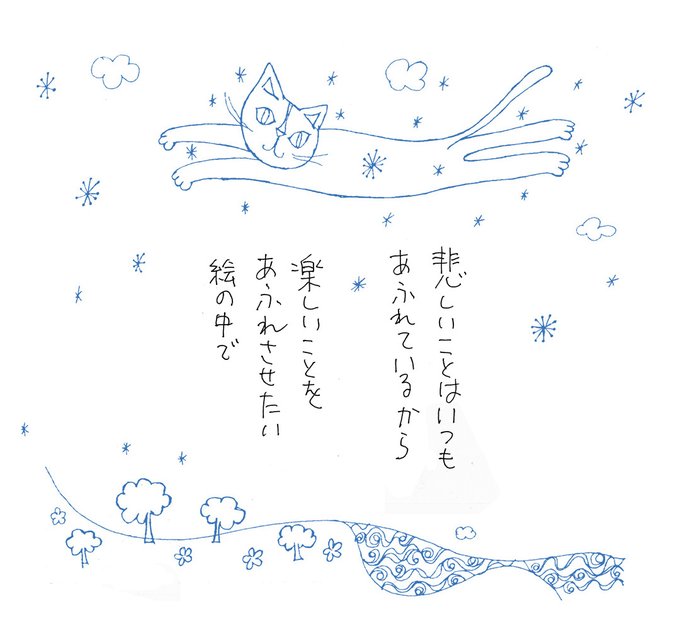 悲しいことはいつも
あふれているから
楽しいことを
あふれさせたい
絵の中で